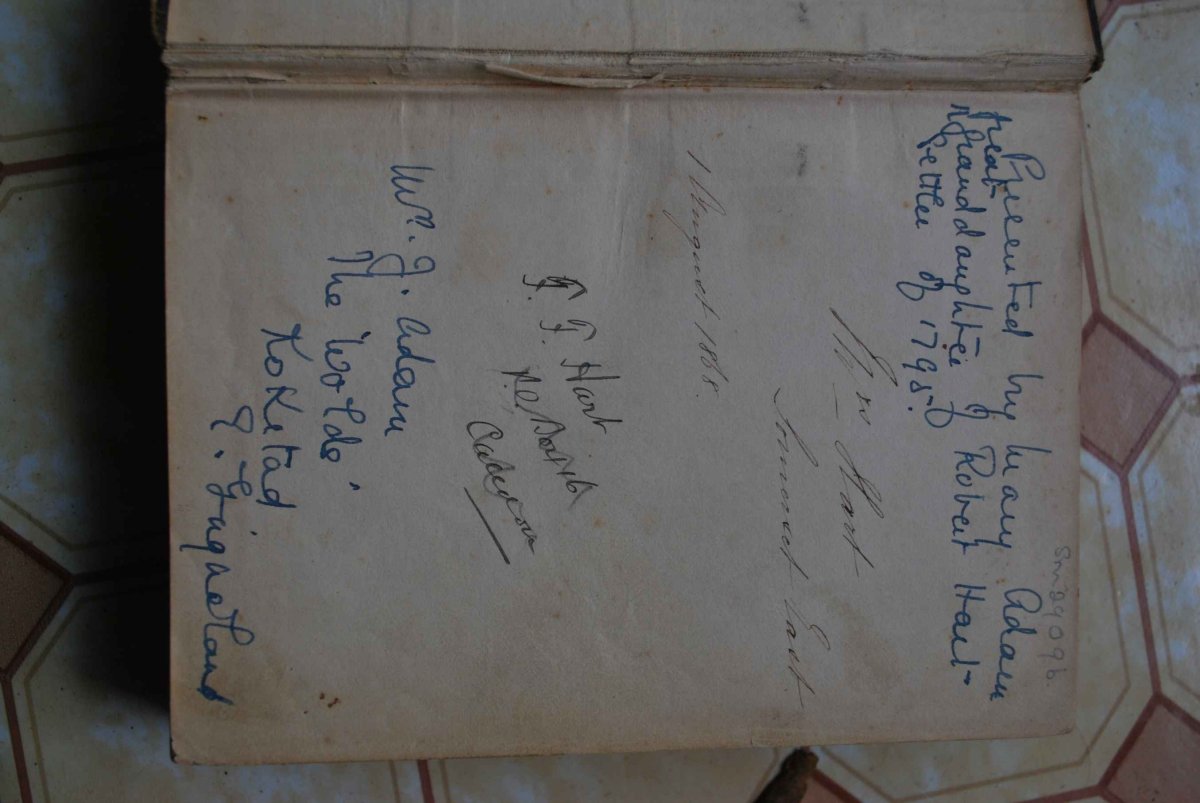 Sm 2909b.
Presented by Mary Adam
great
granddaughter of Robert Hart
settler of 1795.
Wm Hart
Somerset East
1 August 1868.
T. Hart
Wm. J. Adam
The 'Wolds'
Kokstad
E. Griqualand